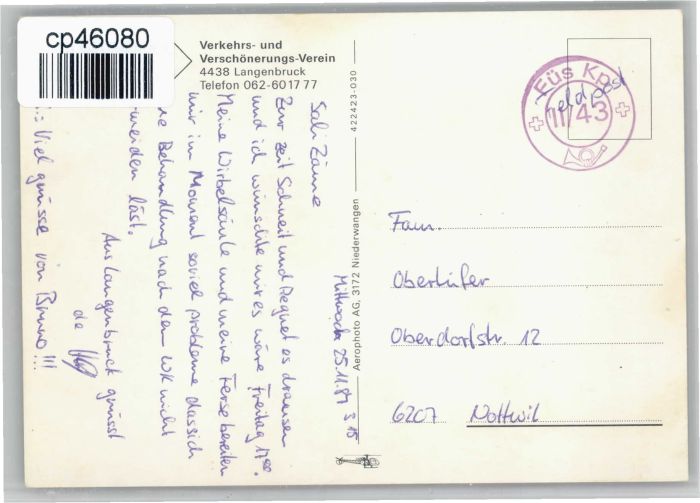 cp46080
Verkehrs- und
Verschönerungs-Verein
4438 Langenbruck
Telefon 062-60 17 77
422423-030
Aerophoto AG, 3172 Niederwangen
Füs Kp
II/43
Feldpost
Mittwoch 25.11.87
Sali Zäme
Zur Zeit Schneit und Regnet es draussen
und ich wünschte mir es wäre Freitag 17⁰⁰.
Meine Wirbelsäule und meine Ferse bereiten
mir im Moment soviel probleme dass ich
Behandlung nach dem WK nicht
läst.
Aus Langenbruck grüsst
de
Viel grüsse von Bruno !!!
Fam.
Oberhüfer
Oberdorfstr. 12
6207 Nottwil